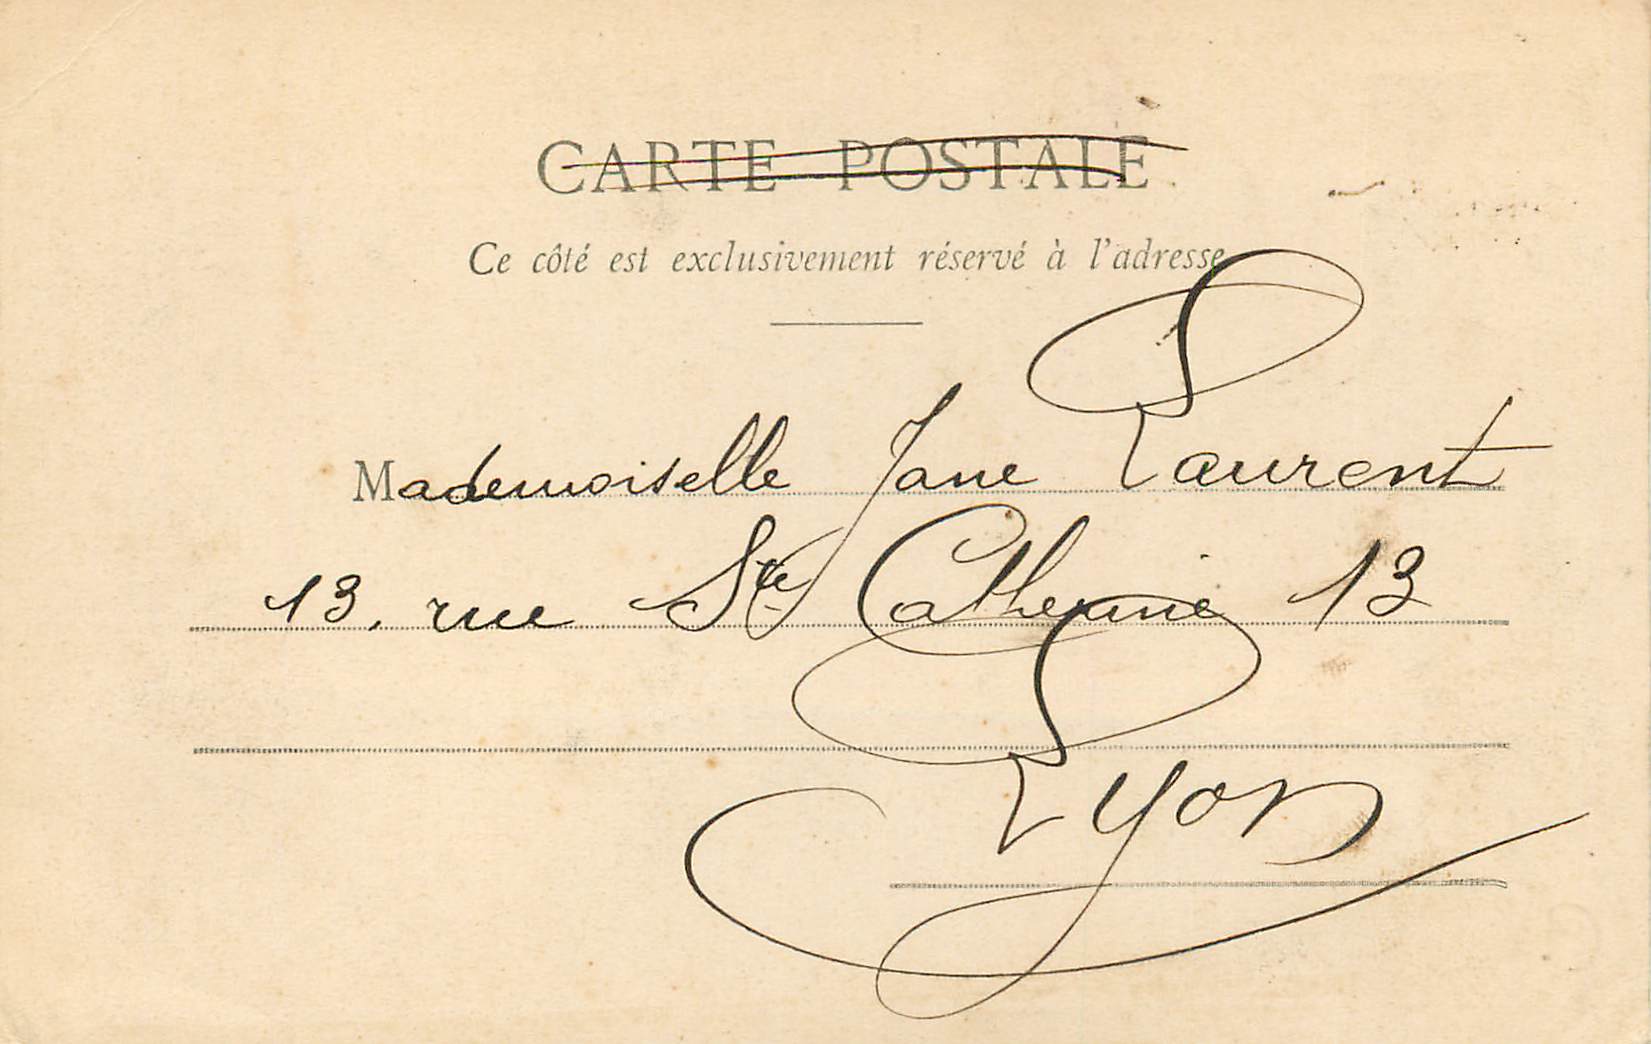 CARTE POSTALE
Ce côté est exclusivement réservé à l'adresse
Mademoiselle Jane Laurent
13, rue Ste Catherine 13
Lyon